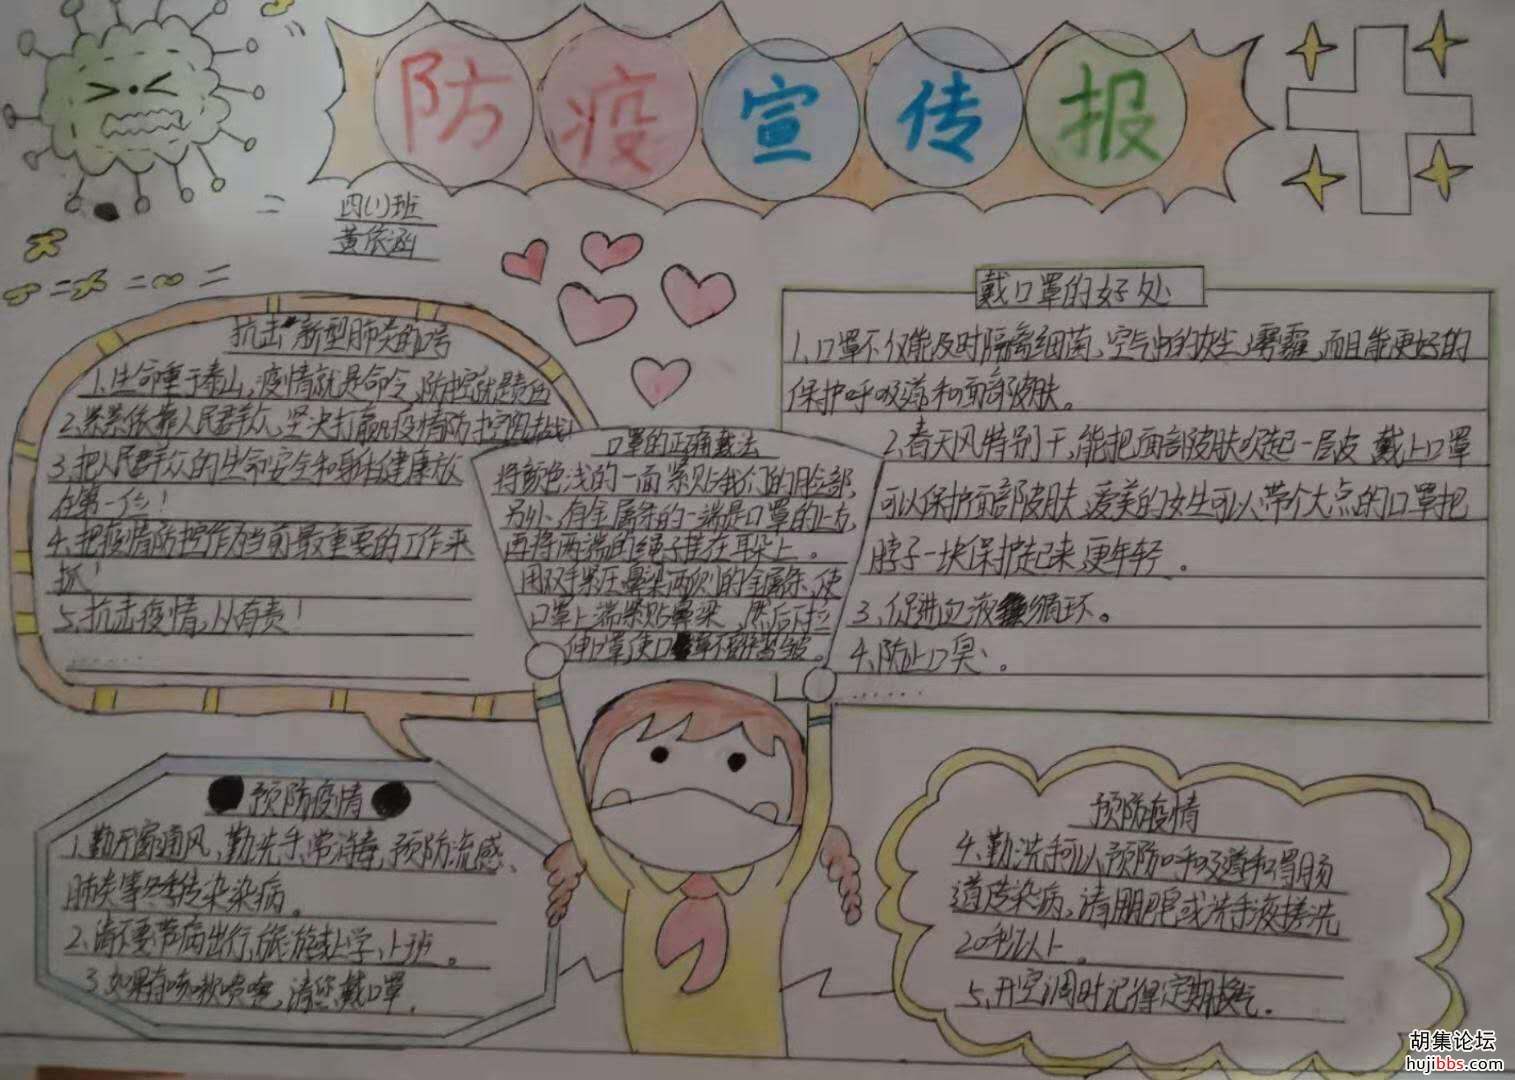 防疫宣传报
四(1)班
黄依涵
抗击新型肺炎的口号
1、生命重于泰山,疫情就是命令,防控就是责任
2、紧紧依靠人民群众,坚决打赢疫情防控阻击战!
3、把人民群众的生命安全和身体健康放
在第一位!
4、把疫情防控作为当前最重要的工作来
抓!
5、抗击疫情,人人有责!
......
口罩的正确戴法
将颜色浅的一面紧贴我们的脸部,
另外,有金属条的一端是口罩的上方,
再将两端的绳子挂在耳朵上。
用双手紧压鼻梁两侧的金属条,使
口罩上端紧贴鼻梁,然后下拉
伸口罩,使口罩不要有褶皱。
戴口罩的好处
1、口罩不仅能及时隔离细菌、空气中的灰尘、雾霾,而且能更好的
保护呼吸道和面部皮肤。
2、春天风特别干,能把面部皮肤吹起一层皮,戴上口罩
可以保护面部皮肤,爱美的女生可以带个大点的口罩把
脖子一块保护起来,更年轻。
3、促进血液循环。
4、防止口臭。
......
预防疫情
1、勤开窗通风,勤洗手,常消毒,预防流感、
肺炎等冬季传染染病。
2、请不要带病出行,旅游或上学、上班。
3、如果有咳嗽喷嚏,请您戴口罩。
预防疫情
4、勤洗手可以预防呼吸道和胃肠
道传染病,请用肥皂或洗手液搓洗
20秒以上。
5、开空调时记得定期换气。
胡集论坛
hujibbs.com